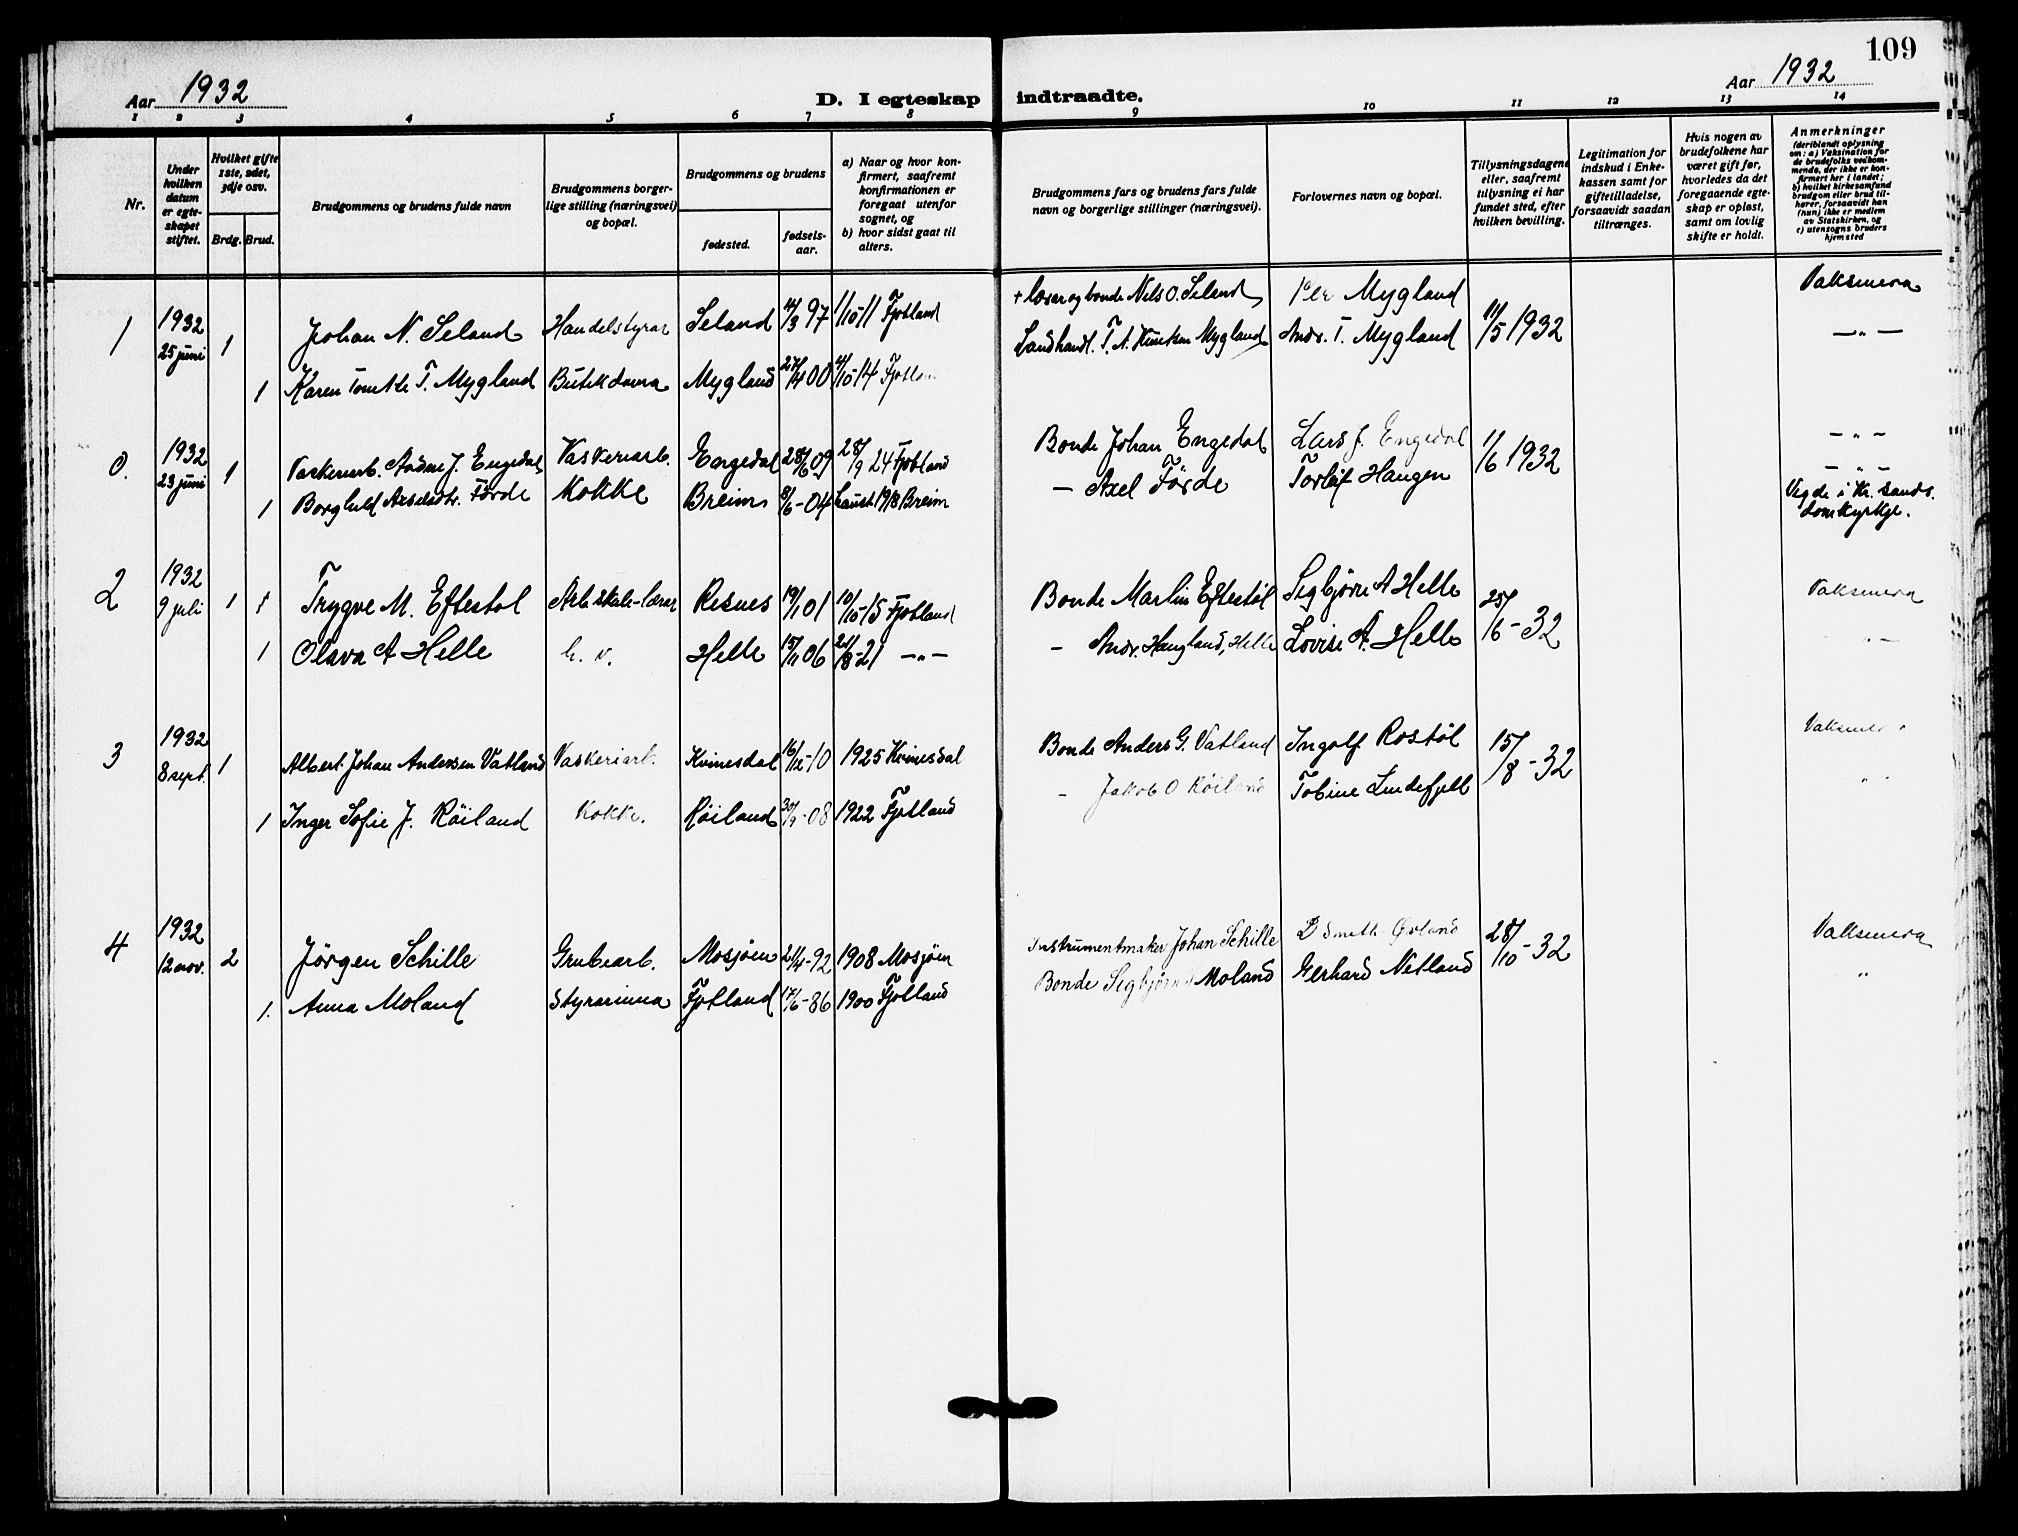 109
Aar 1932
D. I egteskap indtraadte.
Aar 1932
1 2 3 4 5 6 7 8 9 10 11 12 13 14
Nr.
Under hvilken datum er egteskapet stiftet.
Hvilket gifte 1ste, 2det, 3dje osv.
Brdg. Brud.
Brudgommens og brudens fulde navn
Brudgommens borgerlige stilling (næringsvei) og bopæl.
Brudgommens og brudens
fødested.
fødselsaar.
a) Naar og hvor konfirmert, saafremt konfirmationen er foregaat utenfor sognet, og
b) hvor sidst gaat til alters.
Brudgommens fars og brudens fars fulde navn og borgerlige stillinger (næringsvei).
Forlovernes navn og bopæl.
Tillysningsdagene eller, saafremt tillysning ei har fundet sted, efter hvilken bevilling.
Legitimation for indskud i Enkekassen samt for giftetilladelse, forsaavidt saadan tiltrænges.
Hvis nogen av brudefolkene har været gift før, hvorledes da det foregaaende egteskap er opløst, samt om lovlig skifte er holdt.
Anmerkninger (deriblandt oplysning om: a) Vaksination for de brudefolks vedkommende, der ikke er konfirmert her i landet; b) hvilket kirkesamfund brudgom eller brud tilhører, forsaavidt han (hun) ikke er medlem av Statskirken, og c) utensogns bruders hjemsted
1 1932 25 juni 1 Johan N. Seland Handelstyrar Seland 14/3 97 1/10-11 Fjotland + lærar og bonde Nils O. Seland Mygland 11/5 1932 Vaksinera
1 Karen T. Mygland Butikdama Mygland 27/4 00 4/10-14 Landhandl. T. A. Mygland Andr. T. Mygland —"—
0. 1932 23 juni 1 Vaskeriarb. J. Engedal Vaskeriarb. Engedal 28/6 09 28/9 24 Fjotland Bonde Johan Engedal Lars J. Engedal 1/6 1932 —"—
1 Borghild Axelsdtr. Førde Kokke Breim 8/6-04 haust 1918 Breim — Axel Førde Torleif Haugen —"—
Vigde i Kr. sands. domkyrkje.
2 1932 9 juli 1 1 Trygve M. Eftestøl Arb.skule-lærar Risnes 19/1 01 10/10-15 Fjotland Bonde Martin Eftestøl Sigbjørn A Helle 25/6-32 Vaksinera
1 Olava A Helle h. v. Helle 15/11 06 21/8-21 —"— - Andr. Haugland, Helle Lovise A. Helle "-
3 1932 8 sept. 1 Albert Johan Andersen Vatland Vaskeriarb. Kvinesdal 16/12-10 1925 Kvinesdal Bonde Anders G. Vatland Ingolf Rostøl 15/8-32
1 Inger Sofie J. Røiland Kokke. Røiland 30/9-08 1922 Fjotland - Jakob O Røiland Tobine Lindefjell " "
4 1932 12 nov. 2 Jørgen Schille Grubearb. Mosjøen 21/4-92 1908 Mosjøen Instrumentmaker Johan Schille 28/10-32 Vaksinera
1. Anna Moland Styrarinna Fjotland 17/6-86 1900 Fjotland Bonde Sigbjørn Moland Gerhard Netland "